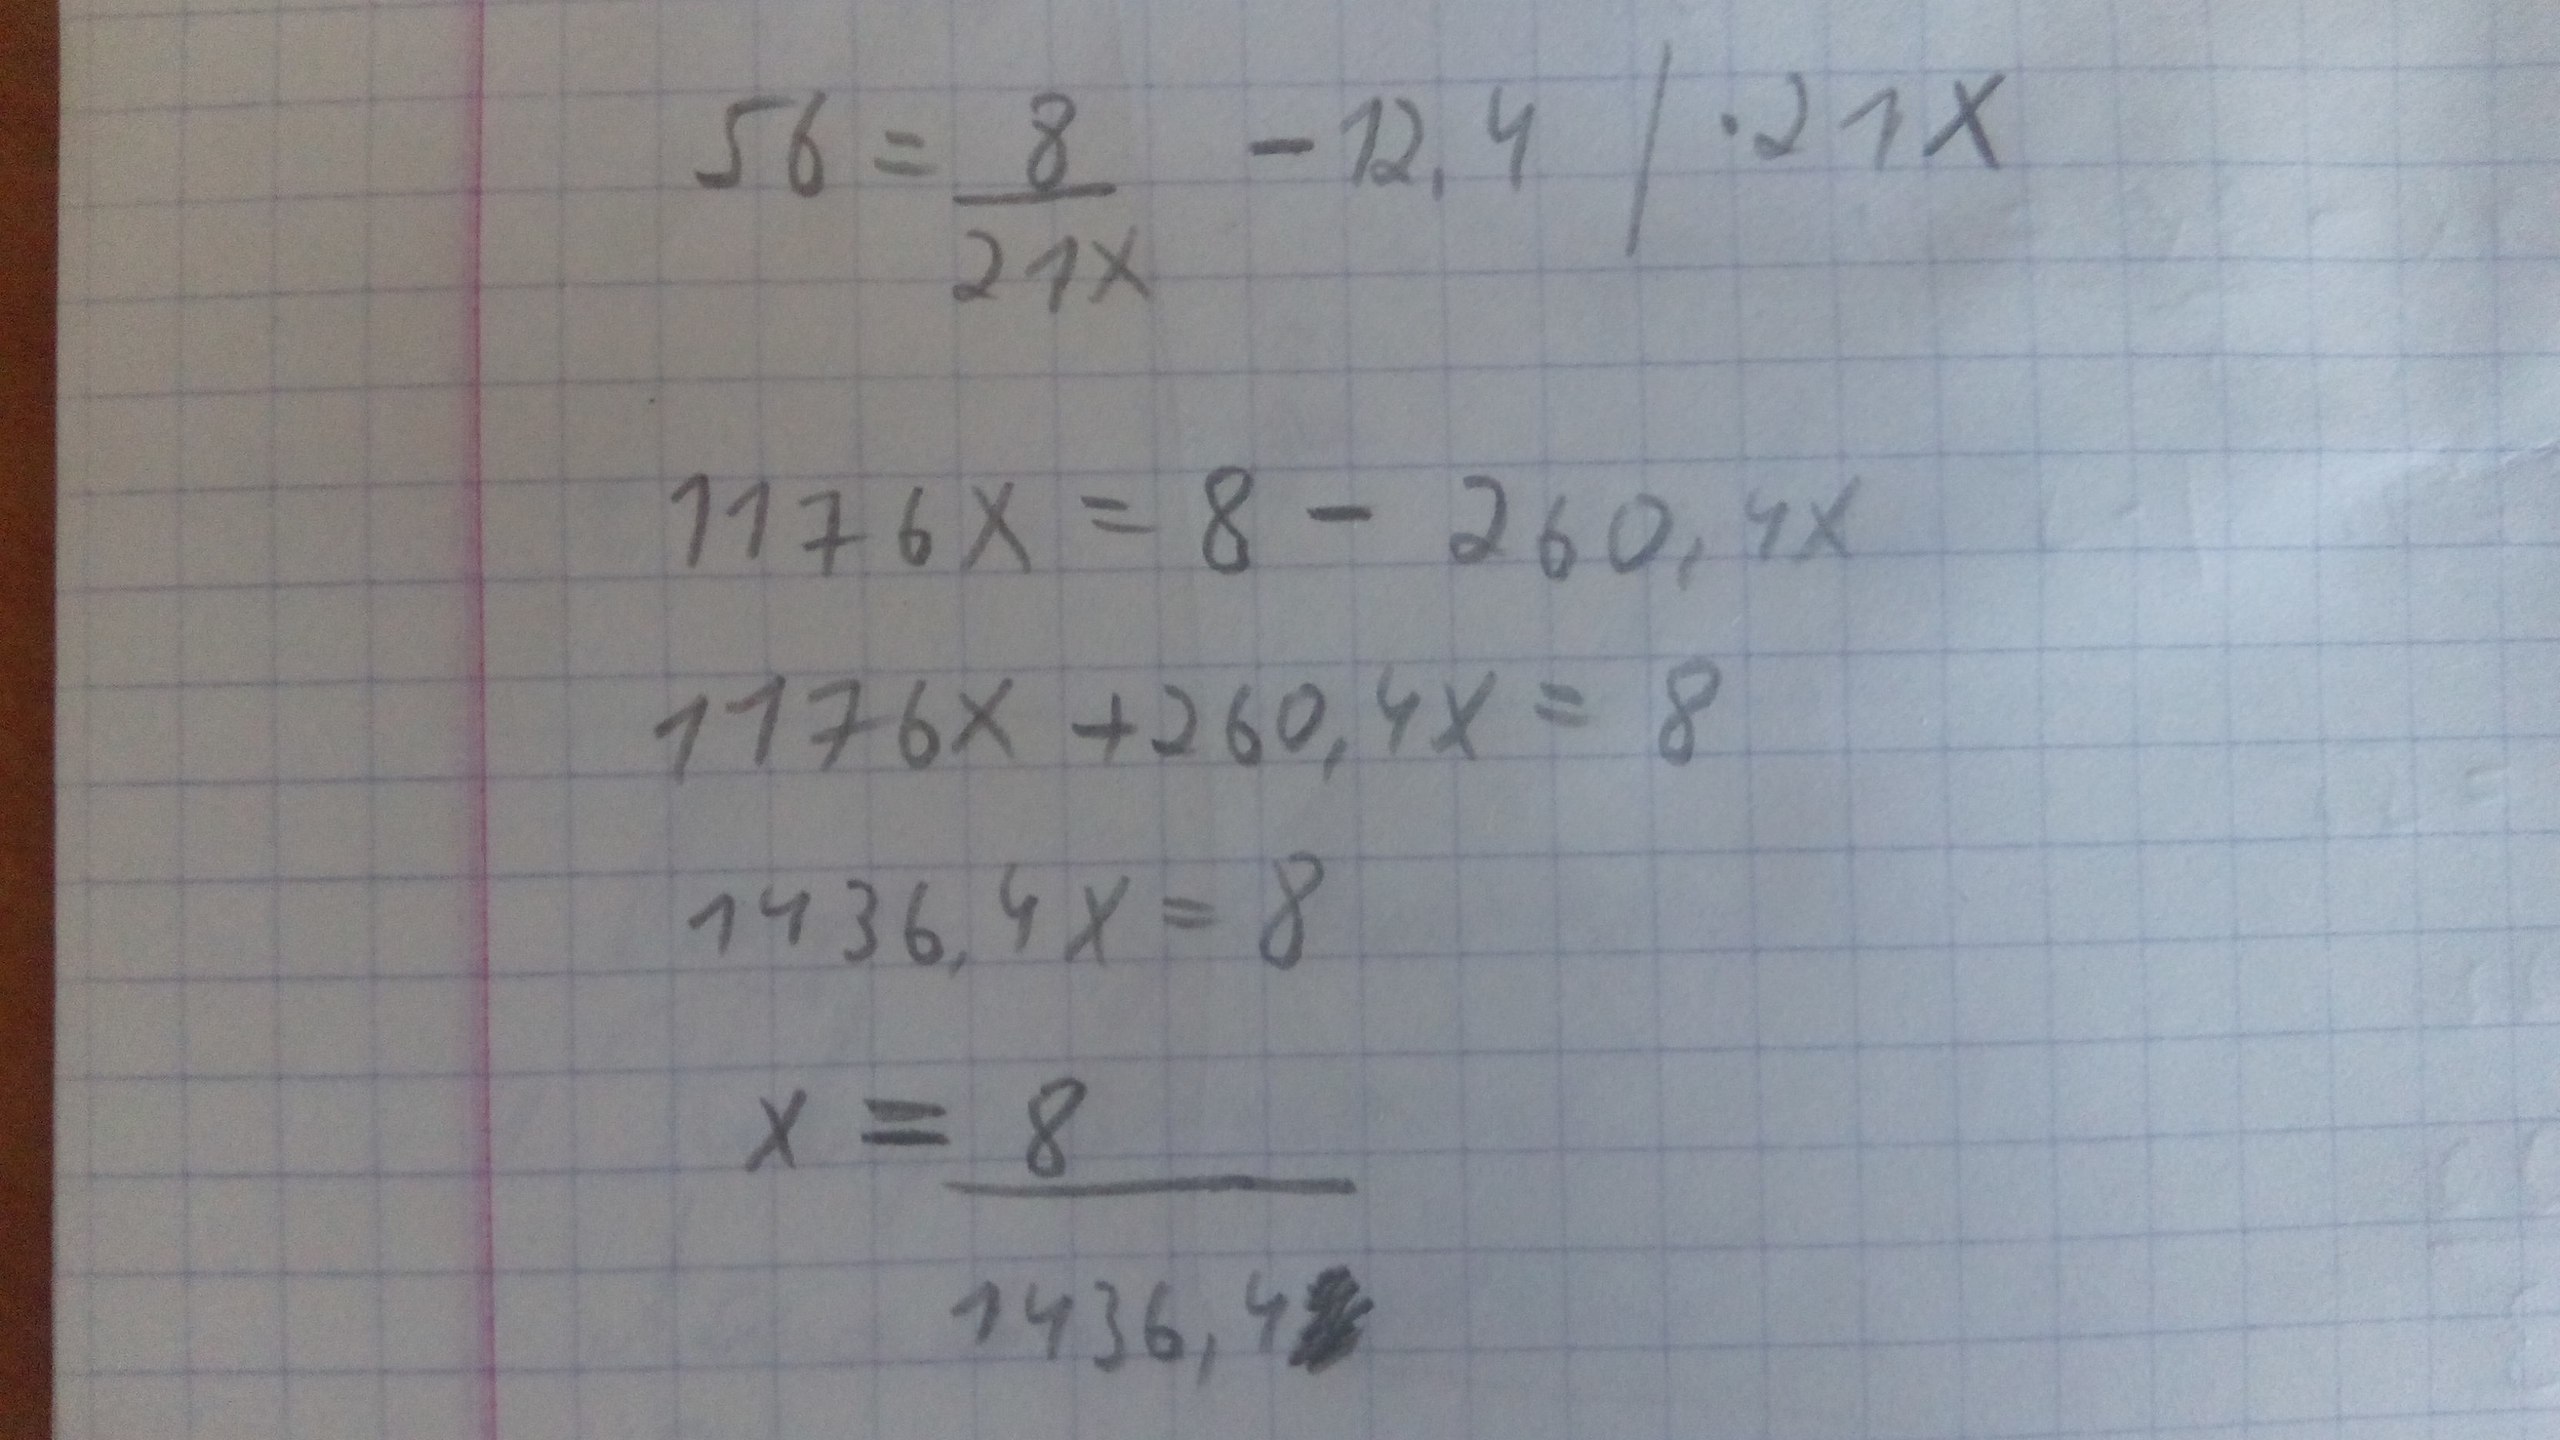 56 = 8/21x - 12,4 / · 21x
1176x = 8 - 260,4x
1176x + 260,4x = 8
1436,4x = 8
x = 8/1436,4